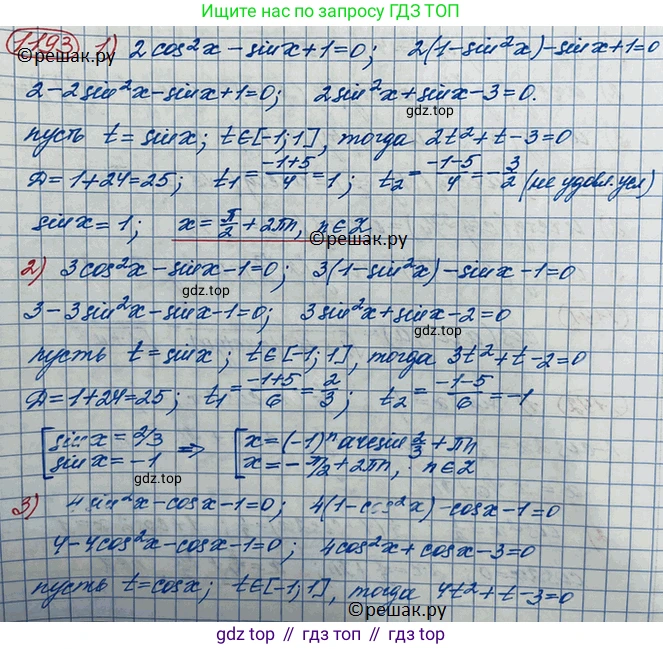 Ищите нас по запросу ГДЗ ТОП
1193 1) 2cos²x - sinx + 1 = 0; 2(1-sin²x) - sinx + 1 = 0
©reшак.ру
2 - 2sin²x - sinx + 1 = 0; 2sin²x + sinx - 3 = 0.
пусть t = sinx; t∈[-1;1], тогда 2t² + t - 3 = 0
Д = 1+24 = 25; t₁ = (-1+5)/4 = 1; t₂ = (-1-5)/4 = -3/2 (не удовл. усл)
sinx = 1; x = π/2 + 2πn, n∈Z
©reшак.ру
2) 3cos²x - sinx - 1 = 0; 3(1-sin²x) - sinx - 1 = 0
гдз top
3 - 3sin²x - sinx - 1 = 0; 3sin²x + sinx - 2 = 0
гдз top
пусть t = sinx; t∈[-1;1], тогда 3t² + t - 2 = 0
Д = 1+24 = 25; t₁ = (-1+5)/6 = 2/3; t₂ = (-1-5)/6 = -1
[sinx = 2/3 ⇒ [x = (-1)ⁿ arcsin 2/3 + πn
sinx = -1 x = -π/2 + 2πn, n∈Z
гдз top
3) 4sin²x - cosx - 1 = 0; 4(1-cos²x) - cosx - 1 = 0
4 - 4cos²x - cosx - 1 = 0; 4cos²x + cosx - 3 = 0
пусть t = cosx; t∈[-1;1], тогда 4t² + t - 3 = 0
©reшак.ру
gdz top // гдз топ // gdz.top // гдз.топ